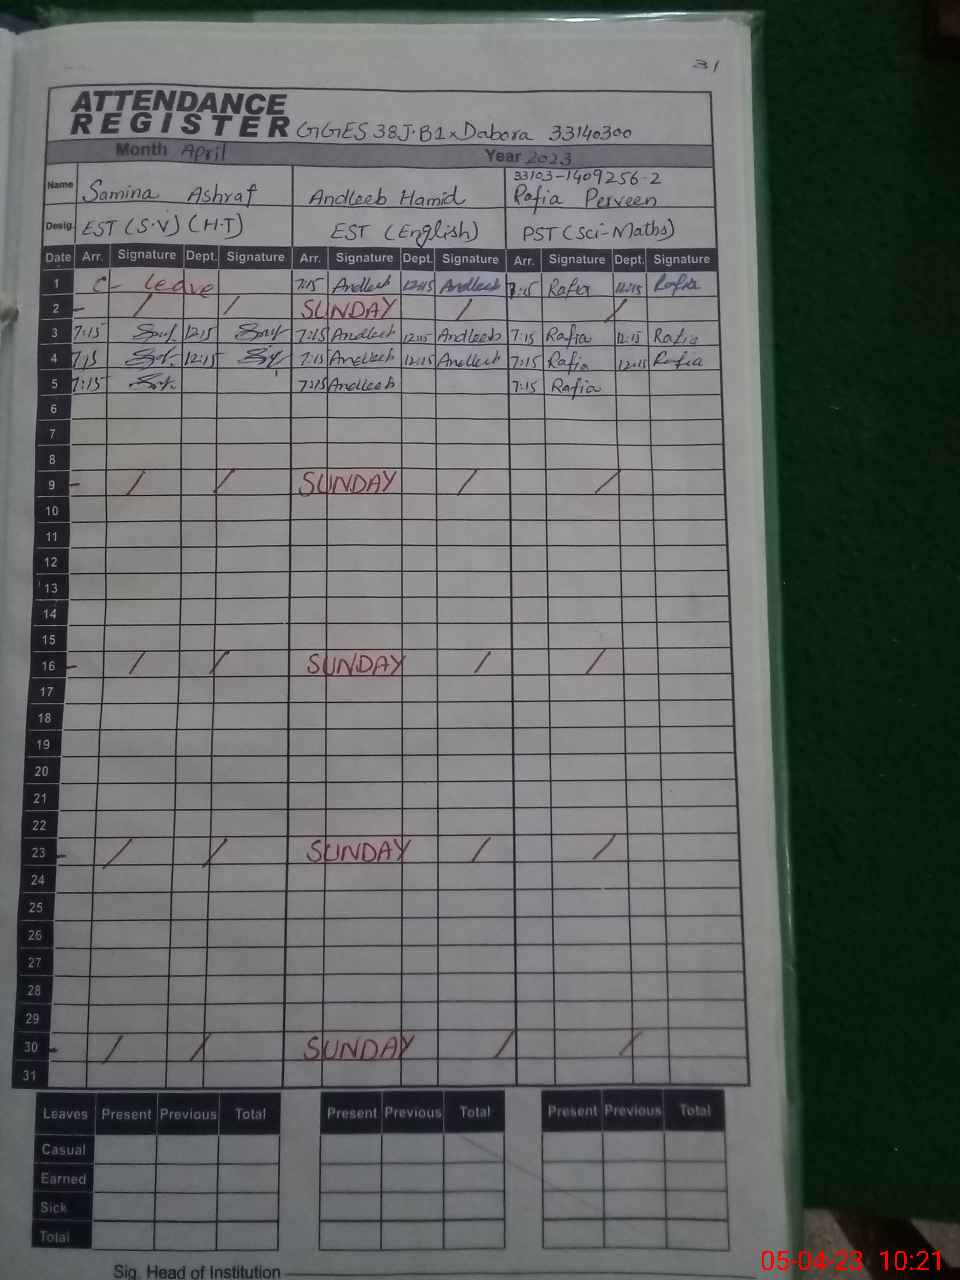 31
ATTENDANCE
REGISTER GGES 38J.B1x Dabora 33140300
Month April Year 2023
33103-1409256-2
Name Samina Ashraf Andleeb Hamid Rafia Perveen
Desig. EST (S.V) (H.T) EST (English) PST (Sci-Maths)
Date Arr. Signature Dept. Signature Arr. Signature Dept. Signature Arr. Signature Dept. Signature
1 C- Leave 7:15 Andleeb 12:15 Andleeb 7:15 Rafia 12:15 Rafia
2 - / / SUNDAY / /
3 7:15 12:15 7:15 Andleeb 12:15 Andleeb 7:15 Rafia 12:15 Rafia
4 7:15 12:15 7:15 Andleeb 12:15 Andleeb 7:15 Rafia 12:15 Rafia
5 7:15 7:15 Andleeb 7:15 Rafia
6
7
8
9 - / / SUNDAY / /
10
11
12
13
14
15
16 - / / SUNDAY / /
17
18
19
20
21
22
23 - / / SUNDAY / /
24
25
26
27
28
29
30 - / / SUNDAY / /
31
Leaves Present Previous Total Present Previous Total Present Previous Total
Casual
Earned
Sick
Total
Sig. Head of Institution
05-04-23 10:21